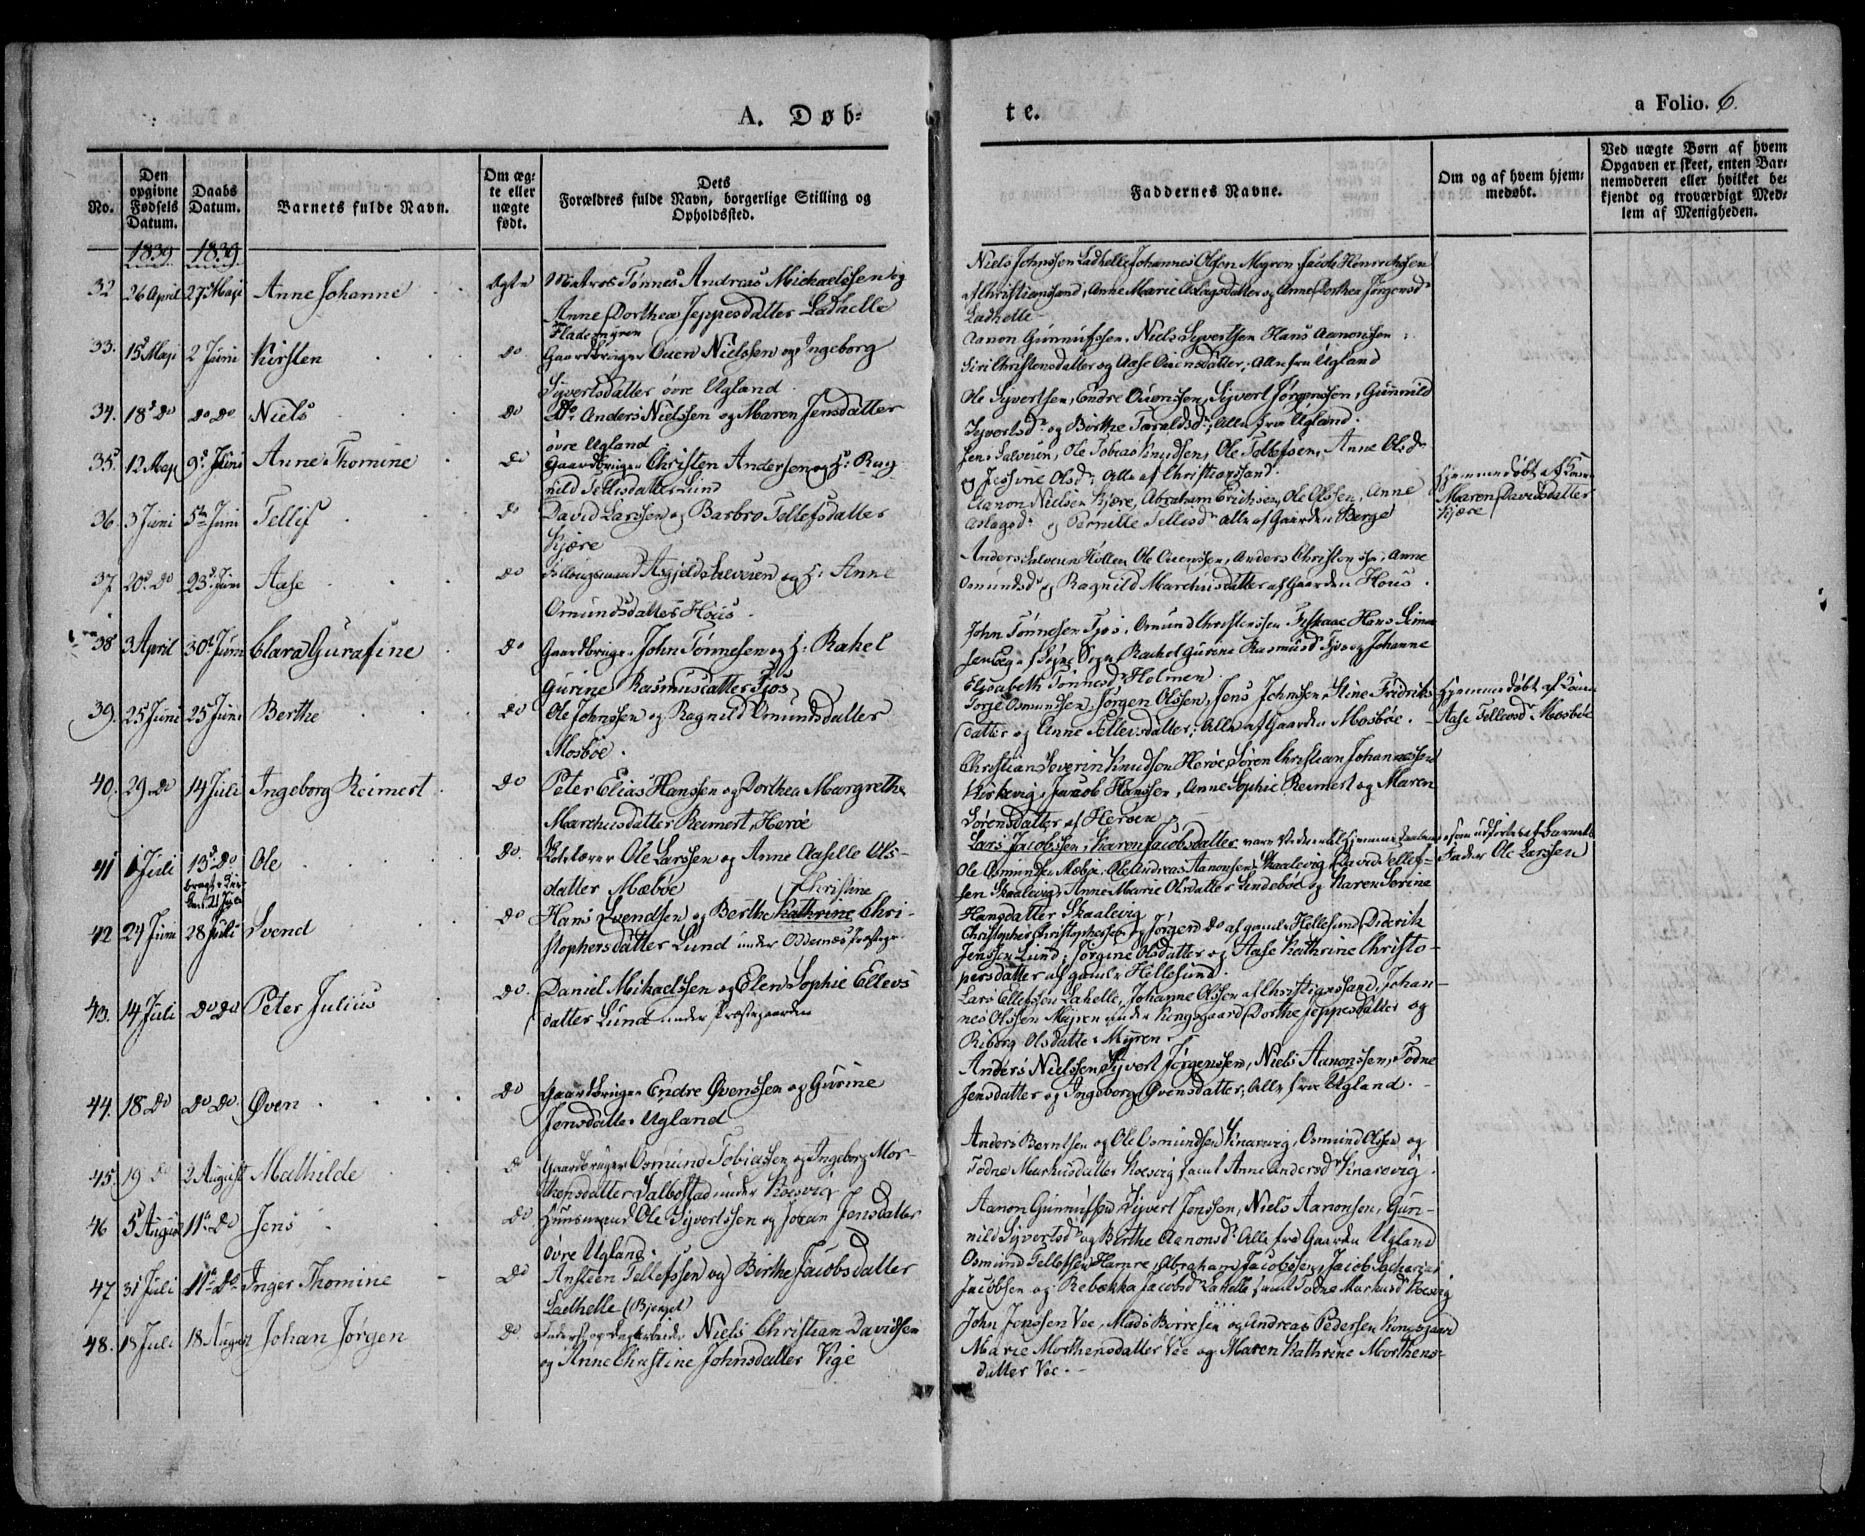 A. Døb-
te.
a Folio. 6.
No.
Den opgivne Fødsels Datum.
Daabs Datum.
Barnets fulde Navn.
Om ægte eller uægte født.
Dets Forældres fulde Navn, borgerlige Stilling og Opholdssted.
Faddernes Navne.
Om og af hvem hjemmedøbt.
Ved uægte Børn af hvem Opgaven er skeet, enten Barnemoderen eller hvilket bekjendt og troværdigt Medlem af Menigheden.
1839 1839
32 26 April 27 Maji Anne Johanne Ægte Matros Tønnes Andreas Michaelssen og
Anne Dorthea Jeppesdatter Ladhelle
Fladsmyren
Niels Johnssen Ladhelle Johannes Olsson Myren, Jacob Henrichssen
af Christiansand, Anne Marie Aslagsdatter og Anne Dorthea Jørgensd.
Ladhelle
33. 15 Maji 2 Juni Kirsten do Gaardbruger Ouen Nielssen og Ingeborg
Syvertsdatter øvre Ugland
Aanon Gunnufssen, Niels Syvertsen Hans Aanonsen
Siri Christensdatter og Aase Ouensdatter, Alle fra Ugland
34. 18 do do do Niels do do Anders Nielssen og Maren Jensdatter
øvre Ugland
Ole Syvertsen, Endre Ouenssen, Syvert Jørgenssen, Gunnild
Syvertsd. og Birthe Taraldsd., Alle fra Ugland
35 12 Maji 9 Juni Anne Thomine do Gaardbruger Christen Andersen og H: Rag
nild Tellisdatter Lund
Jens Salvesen, Ole Tobias Knudsen, Ole Tellefsen, Anne Olsd.
og Jessine Olsd. Alle af Christianssand
36 3 Juni 5 Juni Tellif do David Larssen og Barbro Tellefsdatter
Kjære
Aanon Nielsen Kjære, Abraham Erichsen, Ole Olssen, Anne
Aslagsd. og Pernille Tellisd. Alle af Gaarden Berge
Hjemmedøbt af Konen
Maren Davidsdatter
Kjære
37 20 do 23 Juni Aase do Asgjeld Salvesen og H: Anne
Omundsdatter Hous
Anders Salvesen Hollen Ole Ouenssen, Anders Christenssen, Anne
Omundsd. og Ragnild Marchusdatter af Gaarden Hous
38 3 April 30 Juni Clara Gurasine do Gaardbruger John Tønnesen og H: Rahel
Gurine Rasmusdatter Tjos
John Tønnesen Tjos, Omund Christenssen Fiskaae Hans Simon
sen Eeg i Søgne Sogn, Rachel Gurine Rasmusd Tjos og Johanne
Elisabeth Tønnesd. Holmen
39. 25 Juni 25 Juni Berthe do Ole Johnssen og Ragnild Omundsdatter
Mosbøe
Torje Osmundsen, Jørgen Olssen, Jens Johnssen, Stine Fridriks-
datter og Anne Tellevsdatter; Alle af Gaarden Mosbøe
Hjemmedøbt af Konen
Aase Tellevsd. Mosbøe
40. 29 do 14 Juli Ingeborg Reimert do Peter Elias Hanssen og Dorthea Margrethe
Marchusdatter Reimert, Herøe
Christian Severin Knudsen Herøe, Søren Christian Johannessen
Kirkevig, Jacob Hanssen, Anne Sophie Reimert og Maren
Sørensdatter af Herøen
41 1 Juli 13 do Ole do Ole Larssen og Anne Aaselle Ols-
datter Mæbøe
bragt i Kir
ken 21 Juli
Lars Jacobssen, Karen Jacobsdatter vare Vidner ved Hjemmedaaben
Ole Osmundsen Mæbøe, Ole Andreas Aanonsen Skaalevig, David Tellef-
sen Skaalevig, Anne Marie Olsdatter Sindebøe og Karen Serine
Hansdatter Skaalevig
som udførtes af Barnets
Fader Ole Larssen
42 24 Juni 28 Juli Svend do Hans Svendsen og Berthe Kathrine Chri-
Christine
stophersdatter Lund under Oddernes Præstegr.
Christopher Christophersen og Jørgen do af gamle Hellesund, Diderik
Jenssen Lund, Jørgine Olsdatter og Aase Kathrine Christo-
persdatter af gamle Hellesund
43. 14 Juli do do Peter Julius do. Daniel Mikaelssen og Elen Sophie Ellevs
datter Lund under Præstegaarden
Lars Ellefsen Lahelle, Johanne Olssen af Christianssand, Johan-
nes Olssen Myren under Kongsgaard Dorthe Jeppesdatter og
Riborg Olsdatter Myren
44. 18 do do do. Øven do Gaardbruger Endre Øvenssen og Gurine
Jensdatter Ugland
Anders Nielssen, Syvert Jørgenssen, Niels Aanonssen, Todne
Jensdatter og Ingeborg Øvensdatter, Alle fra Ugland
45. 19 do 2 August Mathilde do Gaardbruger Osmund Tobiassen og Ingeborg Mor-
thensdatter Salbostad under Roesvig
Anders Berntsen og Ole Osmundsen Knarevig, Osmund Olssen og
Todne Markusdatter Roesvig samt Anne Andersd. Knarevig
46 5 August 11 do Jens do Huusmand Ole Syvertssen og Johan Jensdatter
øvre Ugland
Aanon Gunnufsen Syvert Jonssen, Niels Aanonsen, Gun-
nild Syvertsd. og Birthe Aanonsd. Alle fra Gaarden Ugland
47 31 Juli 11 do Inger Thomine do Ansteen Tellefssen og Birthe Jacobsdatter
Ladhelle (Bjerget)
Osmund Tellefsen Hamre, Abraham Jacobssen, Jacob Zacharias
Jacobsen og Rebækka Jacobsd. Lahelle samt Todne Markusd Roesvig
48. 18 Juli 18 August Johan Jørgen do. Inderst og Dagarbeider Niels Christian Davidsen
og Anne Christine Johnsdatter Vige
John Jonssen Vee, Mads Børresen og Andreas Pedersen Kongsgaard
Marie Morthensdatter Vee og Maren Kathrine Morthens-
datter Vee.